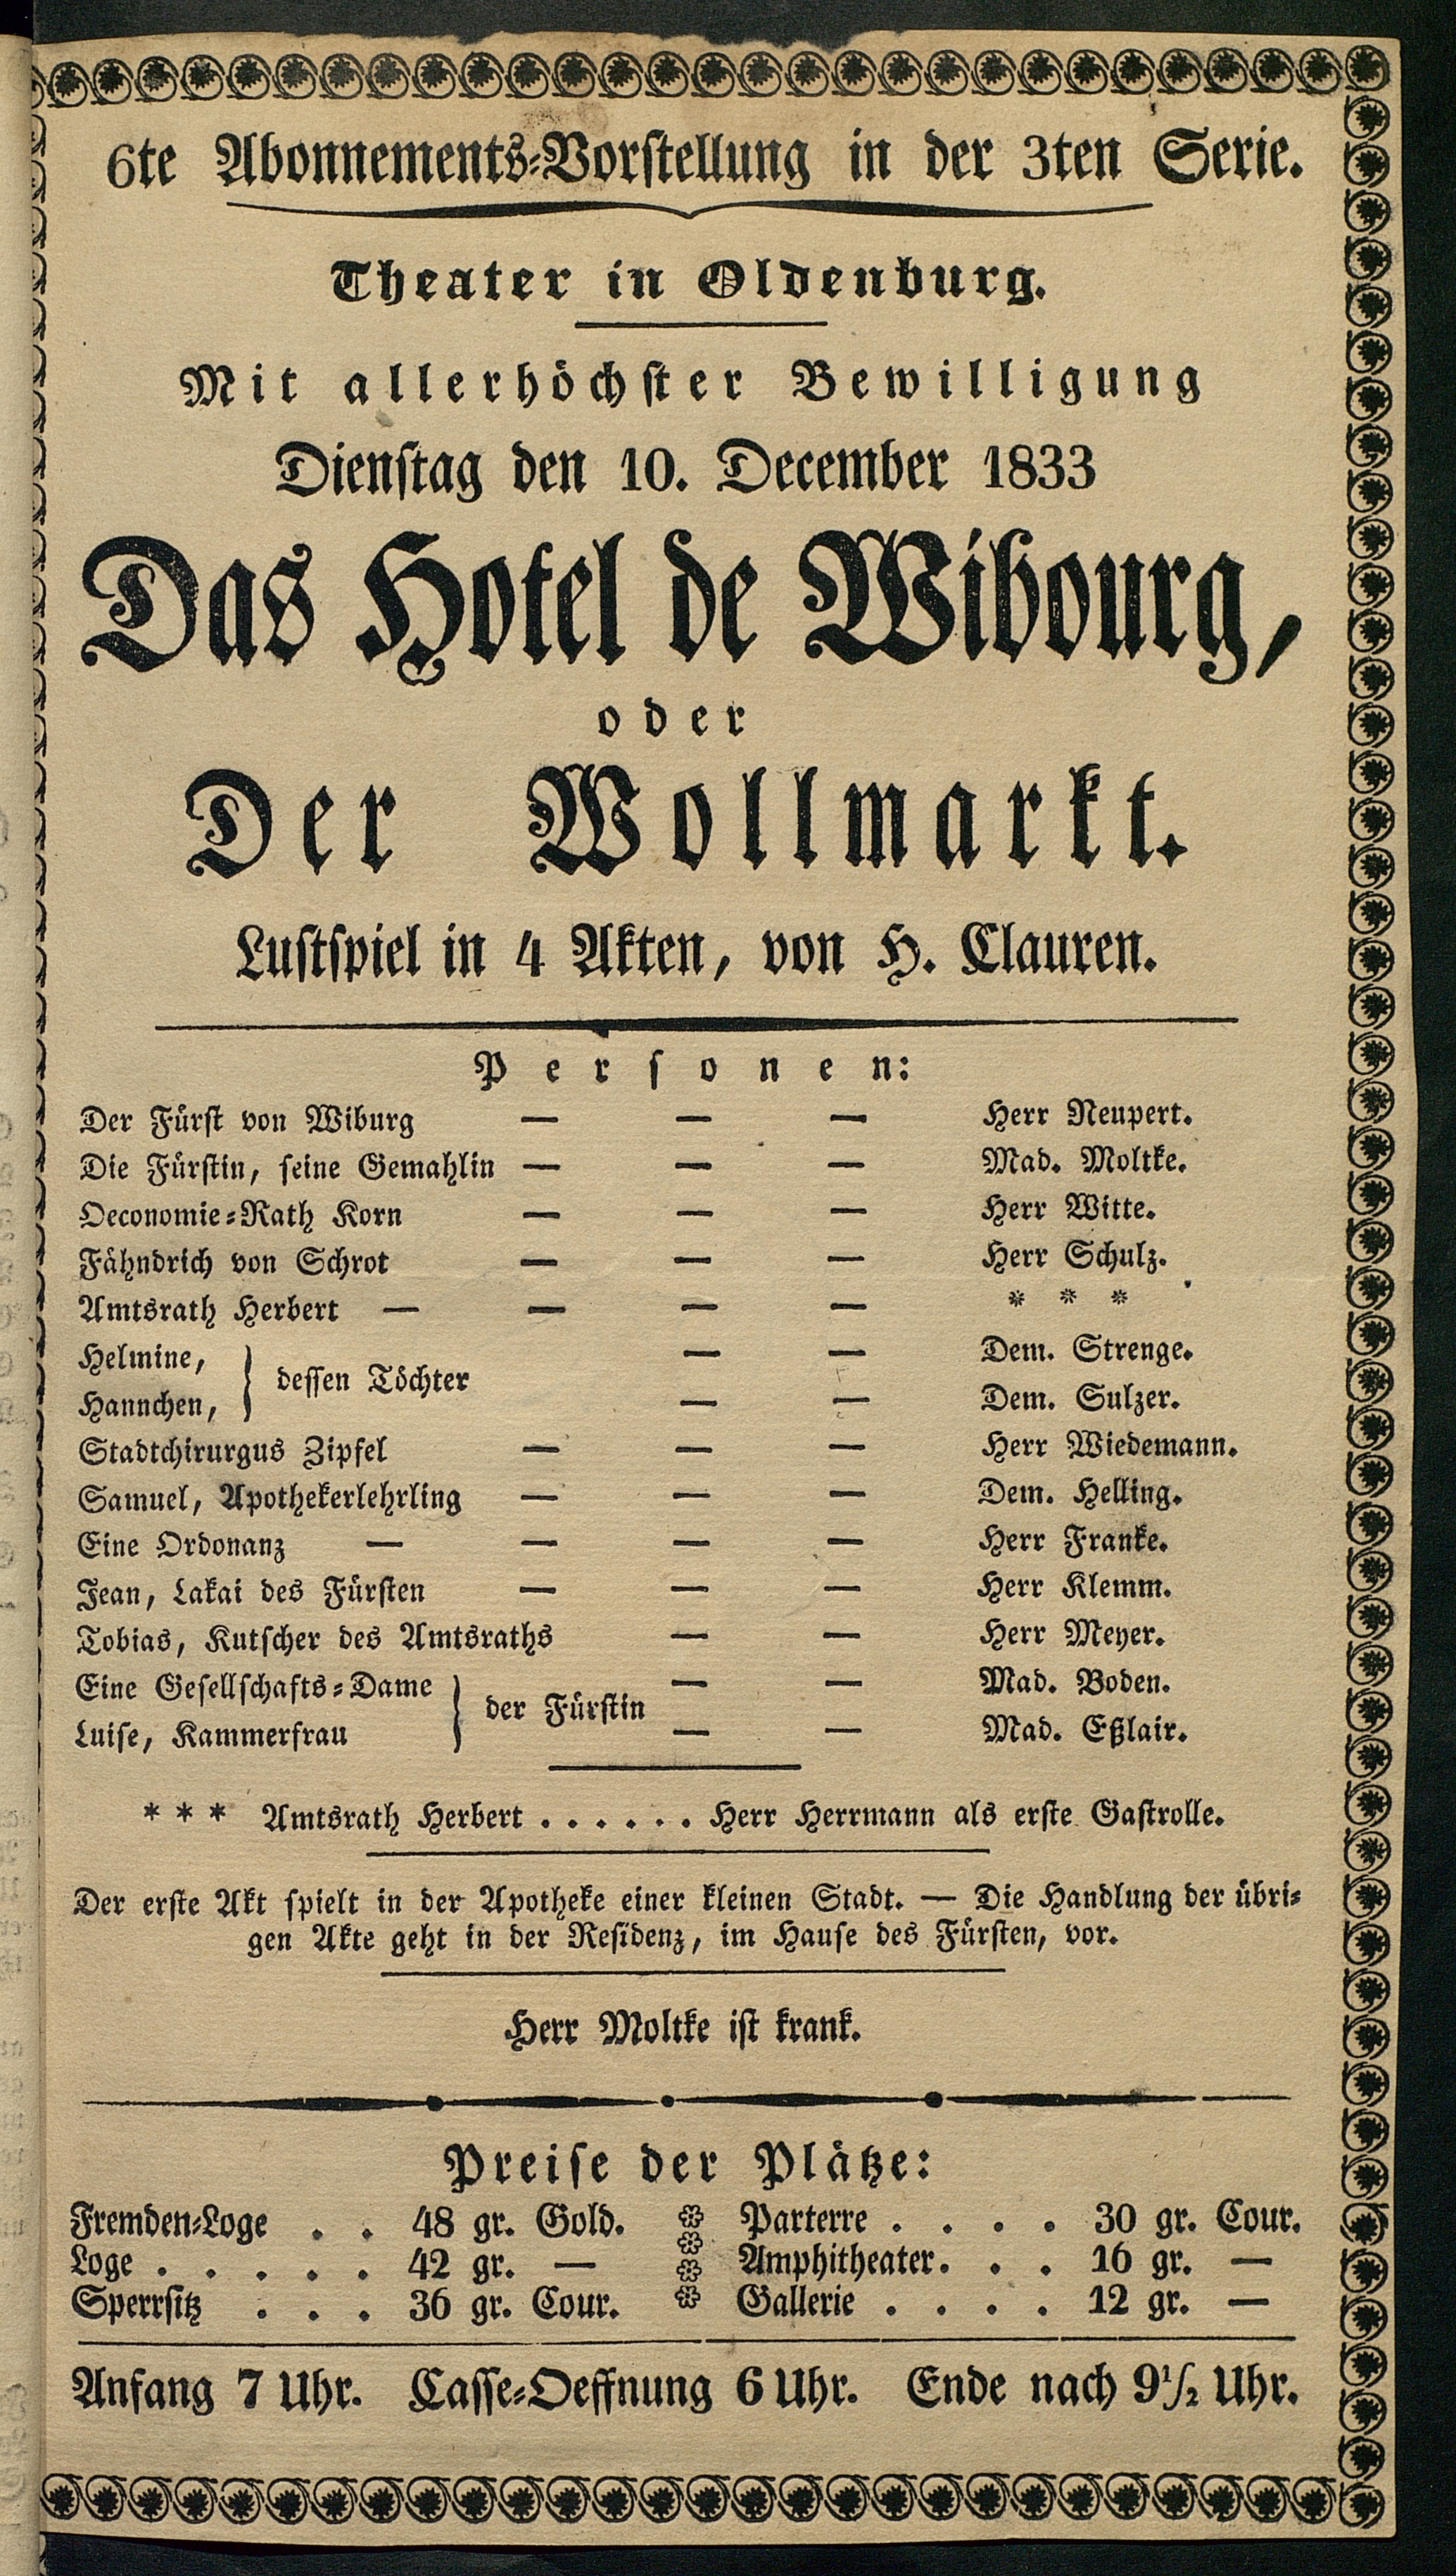 6te Abonnements-Vorstellung in der 3ten Serie.
Theater in Oldenburg.
Mit allerhöchster Bewilligung
Dienstag den 10. December 1833
Das Hotel de Wibourg,
oder
Der Wollmarkt.
Lustspiel in 4 Akten, von H. Clauren.
Personen:
Der Fürst von Wiburg — — — Herr Neupert.
Die Fürstin, seine Gemahlin — — — Mad. Moltke.
Oeconomie-Rath Korn — — — Herr Witte.
Fähndrich von Schrot — — — Herr Schulz.
Amtsrath Herbert — — — — * * *
Helmine, — — Dem. Strenge.
} dessen Töchter
Hannchen, — — Dem. Sulzer.
Stadtchirurgus Zipfel — — — Herr Wiedemann.
Samuel, Apothekerlehrling — — — Dem. Helling.
Eine Ordonanz — — — — Herr Franke.
Jean, Lakai des Fürsten — — — Herr Klemm.
Tobias, Kutscher des Amtsraths — — Herr Meyer.
Eine Gesellschafts-Dame — — Mad. Boden.
} der Fürstin
Luise, Kammerfrau — — Mad. Eßlair.
* * * Amtsrath Herbert . . . . . . Herr Herrmann als erste Gastrolle.
Der erste Akt spielt in der Apotheke einer kleinen Stadt. — Die Handlung der übri-
gen Akte geht in der Residenz, im Hause des Fürsten, vor.
Herr Moltke ist krank.
Preise der Plätze:
Fremden-Loge . . 48 gr. Gold. Parterre . . . . 30 gr. Cour.
Loge . . . . . 42 gr. — Amphitheater. . . 16 gr. —
Sperrsitz . . . 36 gr. Cour. Gallerie . . . . 12 gr. —
Anfang 7 Uhr. Casse-Oeffnung 6 Uhr. Ende nach 9½ Uhr.